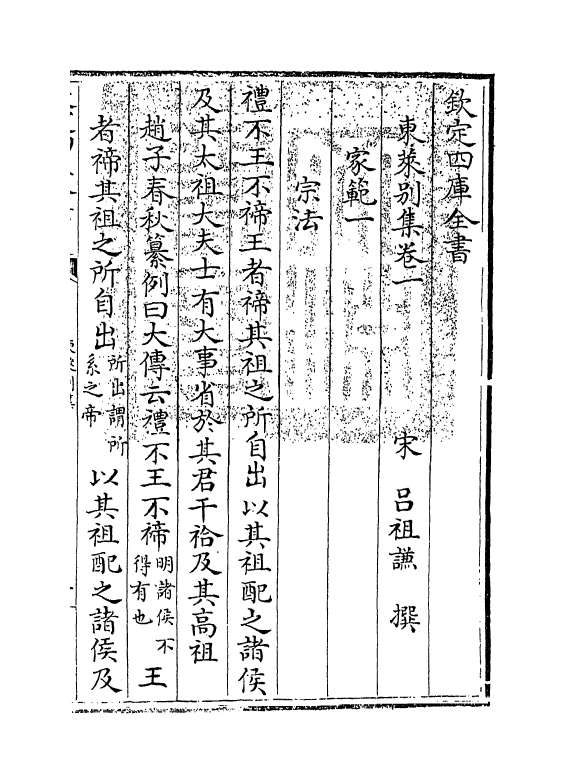 欽定四庫全書
東萊別集卷一
宋 呂祖謙 撰
家範一
宗法
禮不王不禘王者禘其祖之所自出以其祖配之諸侯
及其太祖大夫士有大事省於其君干祫及其高祖
趙子春秋纂例曰大傳云禮不王不禘明諸侯不得有也王
者禘其祖之所自出所出謂所系之帝以其祖配之諸侯及